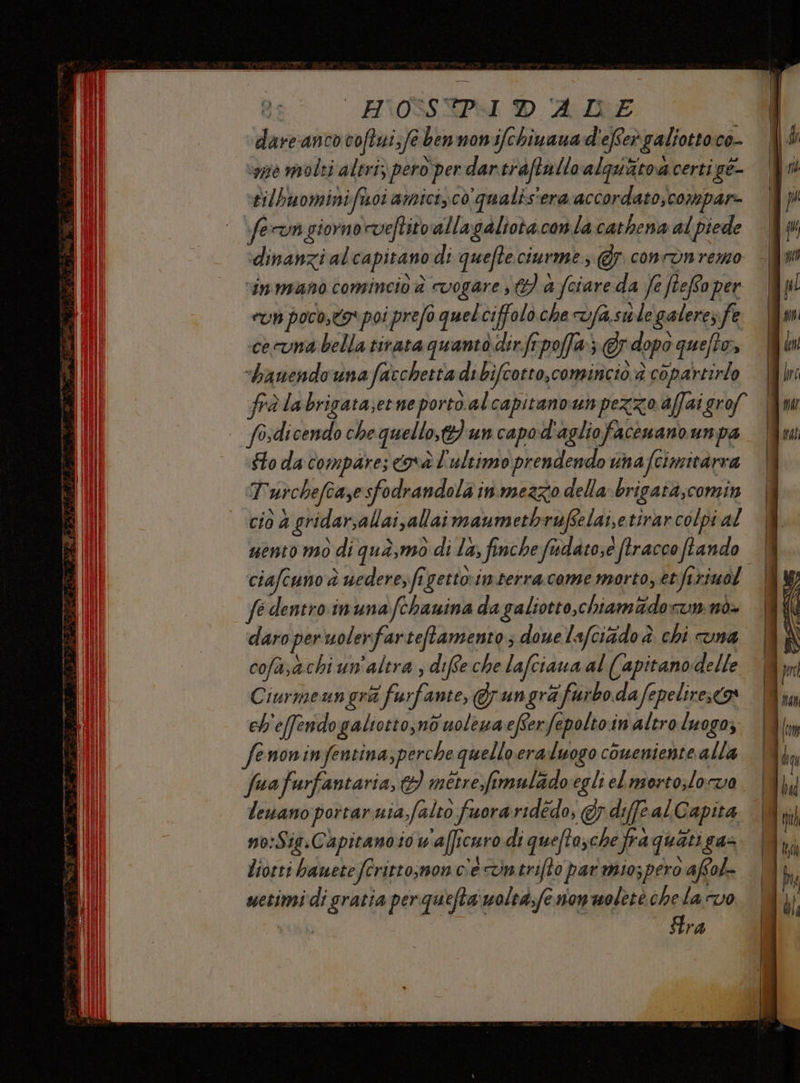 HOSPIDALE
dare anco costui, se ben non ischiuaua d'esser galiotto co-
me molti altri, però per dar trastullo alquāto a certi gē-
tilhuomini suoi amici, cō quali s'era accordato, compar-
se vn giorno vestito alla galiota con la cathena al piede
dinanzi al capitano di queste ciurme, & con vn remo
in mano cominciò à vogare, & à sciare da se stesso per
vn poco, & poi preso quel ciffolo che vsa sù le galere, se
ce vna bella tirata quanto dir si possa; & dopò questo,
hauendo una sacchetta di biscotto, cominciò à cōpartirlo
frà la brigata, et ne portò al capitano un pezzo assai gros
so, dicendo che quello, & un capo d'aglio faceuano un pa
sto da compare; & à l'ultimo prendendo una scimitarra
Turchesca, e sfodrandola in mezzo della brigata, comin
ciò à gridar, allai, allai maumethrusselai, e tirar colpi al
uento mò di quà, mò di là, finche sudato, e stracco stando
ciascuno à uedere, si gettò in terra come morto, et si riuol
se dentro in una schauina da galiotto, chiamādo vn no-
daro per uoler far testamento; doue lasciādo à chi vna
cosa, à chi un'altra, disse che lasciaua al Capitano delle
Ciurme un grā furfante, & un grā furbo da sepelire; &
ch'essendo galiotto, nō uoleua esser sepolto in altro luogo,
se non in sentina, perche quello era luogo cōueniente alla
sua furfantaria, & mētre, simulādo egli el morto, lo vo
leuano portar uia, saltò fuora ridēdo, & disse al Capita
no: Sig. Capitano io u'assicuro di questo, che frà quāti ga-
liotti hauete scritto, non c'è vn tristo par mio; però assol-
uetimi di gratia per questa uolta, se non uolete che la vo
stra